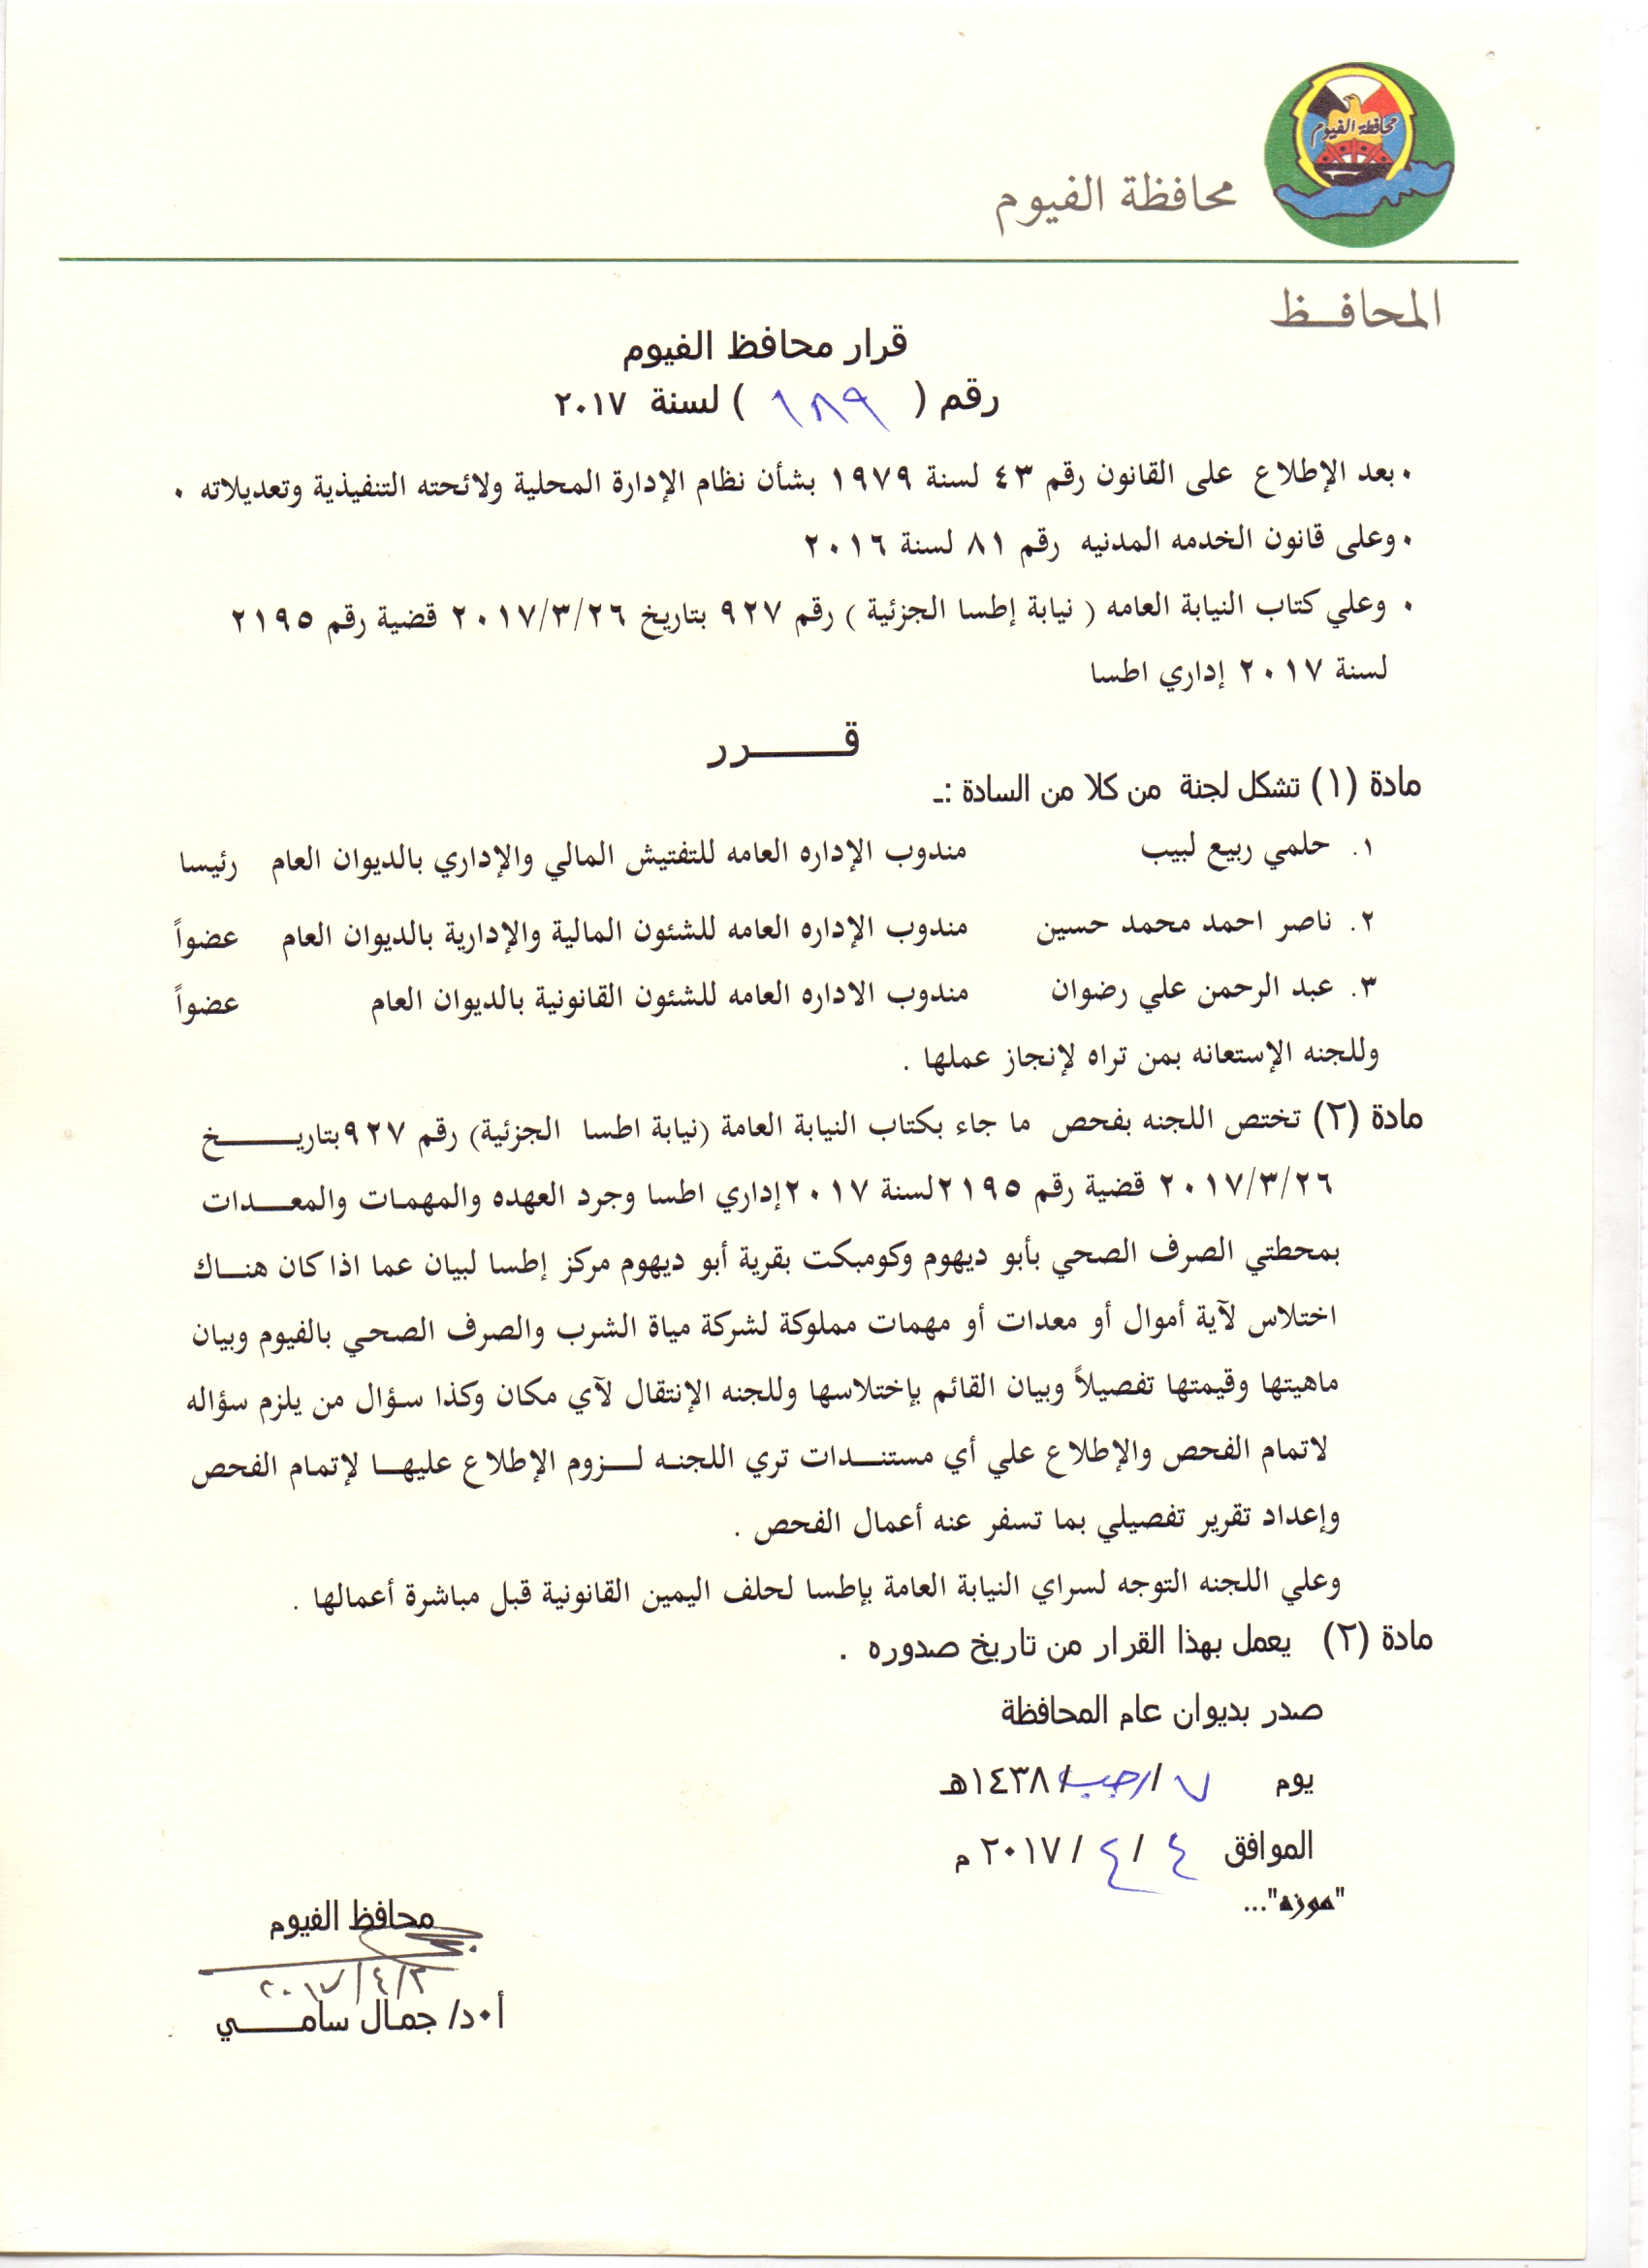 محافظة الفيوم
محافظة الفيوم
المحافـــظ
قرار محافظ الفيوم
رقم ( ١٨٩ ) لسنة ٢٠١٧
٠ بعد الإطلاع على القانون رقم ٤٣ لسنة ١٩٧٩ بشأن نظام الإدارة المحلية ولائحته التنفيذية وتعديلاته ٠
٠ وعلى قانون الخدمه المدنيه رقم ٨١ لسنة ٢٠١٦
٠ وعلي كتاب النيابة العامه ( نيابة إطسا الجزئية ) رقم ٩٢٧ بتاريخ ٢٠١٧/٣/٢٦ قضية رقم ٢١٩٥
لسنة ٢٠١٧ إداري اطسا
قـــــــرر
مادة (١) تشكل لجنة من كلا من السادة :ـ
١. حلمي ربيع لبيب مندوب الإداره العامه للتفتيش المالي والإداري بالديوان العام رئيسا
٢. ناصر احمد محمد حسين مندوب الإداره العامه للشئون المالية والإدارية بالديوان العام عضواً
٣. عبد الرحمن علي رضوان مندوب الاداره العامه للشئون القانونية بالديوان العام عضواً
وللجنه الإستعانه بمن تراه لإنجاز عملها .
مادة (٢) تختص اللجنه بفحص ما جاء بكتاب النيابة العامة (نيابة اطسا الجزئية) رقم ٩٢٧بتاريـــــــخ
٢٠١٧/٣/٢٦ قضية رقم ٢١٩٥لسنة ٢٠١٧إداري اطسا وجرد العهده والمهمات والمعــــدات
بمحطتي الصرف الصحي بأبو ديهوم وكومبكت بقرية أبو ديهوم مركز إطسا لبيان عما اذا كان هنـــاك
اختلاس لآية أموال أو معدات أو مهمات مملوكة لشركة مياة الشرب والصرف الصحي بالفيوم وبيان
ماهيتها وقيمتها تفصيلاً وبيان القائم بإختلاسها وللجنه الإنتقال لآي مكان وكذا سؤال من يلزم سؤاله
لاتمام الفحص والإطلاع علي أي مستنـــدات تري اللجنه لــــزوم الإطلاع عليهـــا لإتمام الفحص
وإعداد تقرير تفصيلي بما تسفر عنه أعمال الفحص .
وعلي اللجنه التوجه لسراي النيابة العامة بإطسا لحلف اليمين القانونية قبل مباشرة أعمالها .
مادة (٢) يعمل بهذا القرار من تاريخ صدوره .
صدر بديوان عام المحافظة
يوم ٧ /رجب/ ١٤٣٨هـ
الموافق ٤ / ٤ / ٢٠١٧ م
"موزه"...
محافظ الفيوم
٢٠١٧/٤/٣
أ٠د/ جمال سامـــــــي